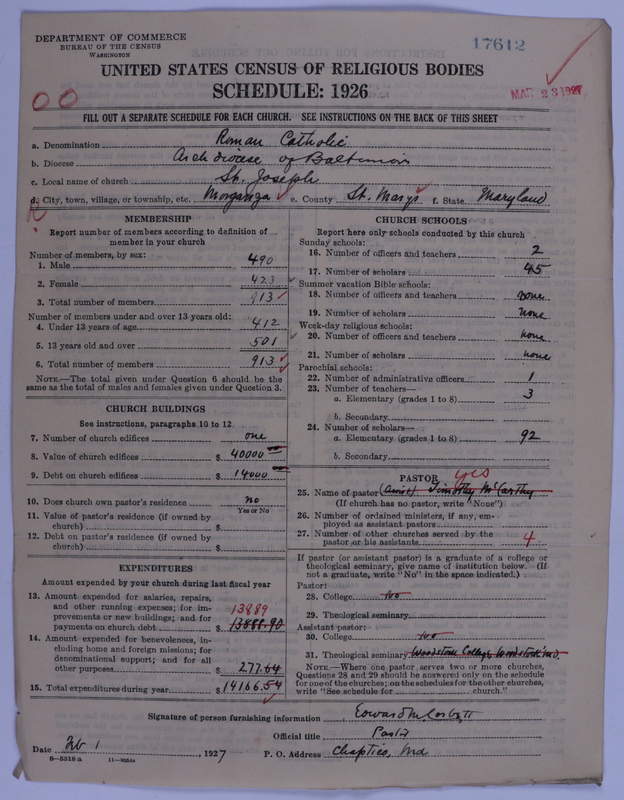 DEPARTMENT OF COMMERCE
BUREAU OF THE CENSUS
WASHINGTON
17612
UNITED STATES CENSUS OF RELIGIOUS BODIES
SCHEDULE: 1926
MAR 23 1927
OO
FILL OUT A SEPARATE SCHEDULE FOR EACH CHURCH. SEE INSTRUCTIONS ON THE BACK OF THIS SHEET
a. Denomination Roman Catholic
b. Diocese Archdiocese of Baltimore
c. Local name of church St. Joseph
d. City, town, village, or township, etc. Morganza e. County St. Marys f. State Maryland
MEMBERSHIP
Report number of members according to definition of member in your church
Number of members, by sex:
1. Male 490
2. Female 423
3. Total number of members 913
Number of members under and over 13 years old:
4. Under 13 years of age 412
5. 13 years old and over 501
6. Total number of members 913
NOTE.—The total given under Question 6 should be the
same as the total of males and females given under Question 3.
CHURCH BUILDINGS
See instructions, paragraphs 10 to 12
7. Number of church edifices one
8. Value of church edifices $ 40000
9. Debt on church edifices $ 14000
10. Does church own pastor's residence no
Yes or No
11. Value of pastor's residence (if owned by
church) $
12. Debt on pastor's residence (if owned by
church) $
EXPENDITURES
Amount expended by your church during last fiscal year
13. Amount expended for salaries, repairs,
and other running expenses; for im-
provements or new buildings; and for
payments on church debt $ 13888.90
13889
14. Amount expended for benevolences, in-
cluding home and foreign missions; for
denominational support; and for all
other purposes $ 277.64
15. Total expenditures during year $ 14166.54
CHURCH SCHOOLS
Report here only schools conducted by this church
Sunday schools:
16. Number of officers and teachers 2
17. Number of scholars 45
Summer vacation Bible schools:
18. Number of officers and teachers none
19. Number of scholars none
Week-day religious schools:
20. Number of officers and teachers none
21. Number of scholars none
Parochial schools:
22. Number of administrative officers 1
23. Number of teachers—
a. Elementary (grades 1 to 8) 3
b. Secondary
24. Number of scholars—
a. Elementary (grades 1 to 8) 92
b. Secondary
PASTOR yes
25. Name of pastor (assist) Timothy McCarthy
(If church has no pastor, write "None")
26. Number of ordained ministers, if any, em-
ployed as assistant pastors
27. Number of other churches served by the
pastor or his assistants 4
If pastor (or assistant pastor) is a graduate of a college or
theological seminary, give name of institution below. (If
not a graduate, write "No" in the space indicated.)
Pastor:
28. College No
29. Theological seminary
Assistant pastor:
30. College No
31. Theological seminary Woodstock College Woodstock Md.
NOTE.—Where one pastor serves two or more churches,
Questions 28 and 29 should be answered only on the schedule
for one of the churches; on the schedules for the other churches,
write "See schedule for church."
Signature of person furnishing information
Official title Pastor
Date Feb 1, 1927 P. O. Address Chaptico, Md
8—5518a 11—9054a